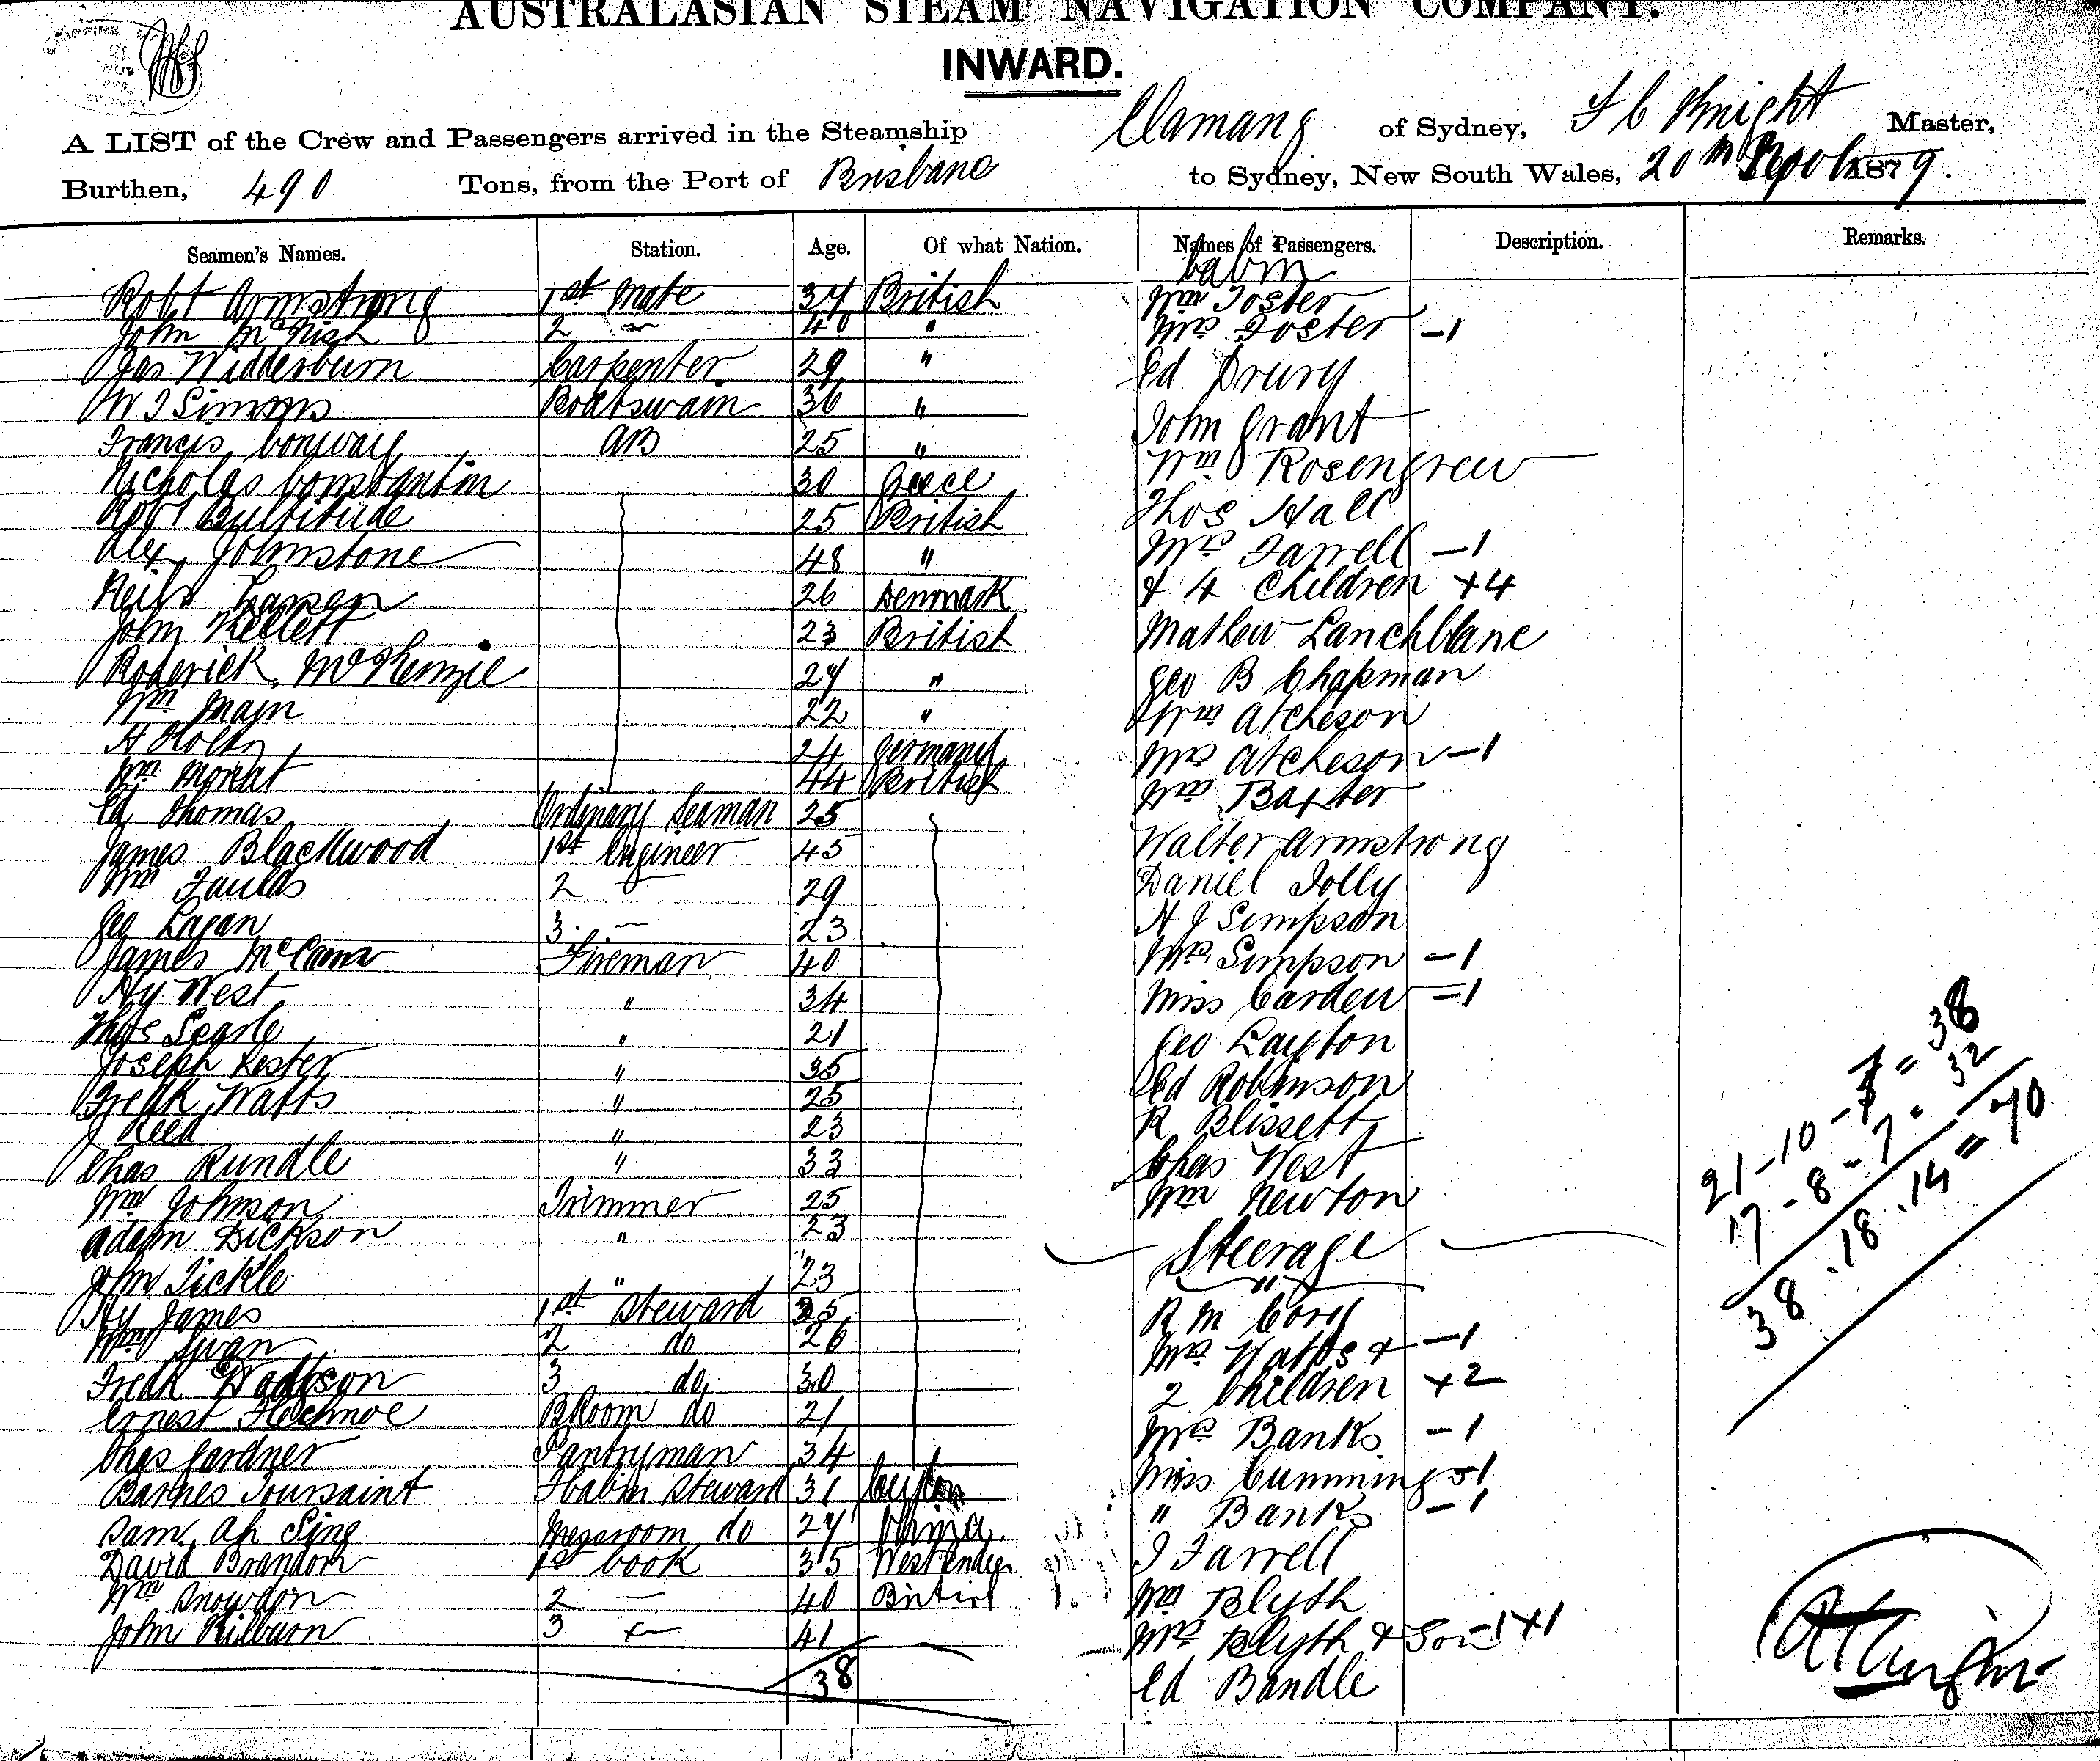 AUSTRALASIAN STEAM NAVIGATION COMPANY.
INWARD.
SHIPPING
NOV
SYDNEY
A LIST of the Crew and Passengers arrived in the Steamship Elamang of Sydney, F C Knight Master,
Burthen, 490 Tons, from the Port of Brisbane to Sydney, New South Wales, 20th 1879.
Seamen's Names. Station. Age. Of what Nation. Names of Passengers. Description. Remarks.
Cabin
Robt Armstrong 1st Mate 34 British Wm Foster
John McNish 2 — 40 " Mrs Foster -1
Jas Widderburn Carpenter 29 " Ed Drury
W J Simms Boatswain 36 " John Grant
Francis Conway AB 25 " Wm Rosengrew
Nicholas Constantin 30 Greece Thos Hall
Robt Bultitude 25 British
Alex Johnstone 48 " Mrs Farrell -1
Neils Lassen 26 Denmark & 4 Children +4
John Kellett 23 British Mathew Lanchblane
Roderick McKenzie 24 " Geo B Chapman
Wm Main 22 " Wm Atcheson
H Holtz 24 Germany Mrs Atcheson -1
Wm Mowat 44 British Wm Baxter
Ed Thomas Ordinary Seaman 25
James Blackwood 1st Engineer 45 Walter Armstrong
Wm Faulds 2 — 29 Daniel Jolly
Geo Lagan 3 — 23 H J Simpson
James Fireman 40 Mrs Simpson -1
Hy West " 34 Miss Carden -1
Thos Searle " 21 Geo Layton
Joseph Lester " 35 Ed Robinson
Fredk Watts " 25 R Blissett
J Reed " 23
Chas Rundle " 33 Chas West
Wm Johnson Trimmer 25 Wm Newton
Adam Dickson " 23 Steerage
John Tickle " 23 "
Hy James 1st Steward 35 R M Cory
Wm Swan 2 do 26 Mrs Watts & -1
Fredk Watson 3 do 30 2 Children +2
Ernest BRoom do 21 Mrs Banks -1
Chas Gardner Pantryman 34 Miss Cummings -1
Barnes Toussaint FCabin Steward 31 Ceylon " Banks -1
Sam Ah Sing Messroom do 24 China J Farrell
David Brandon 1st Cook 35 West Indies
Wm Snowdon 2 — 40 British Wm Blyth
John Kilburn 3 — 41 Mrs Blyth & Son -1+1
38 Ed Bandle
21-10-7 = 38
17-8-7 = 32
38.18.14 = 70